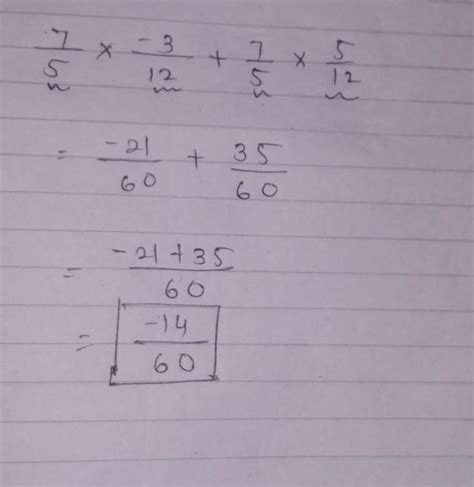 7/5 × -3/12 + 7/5 × 5/12
= -21/60 + 35/60
= -21+35/60
= -14/60